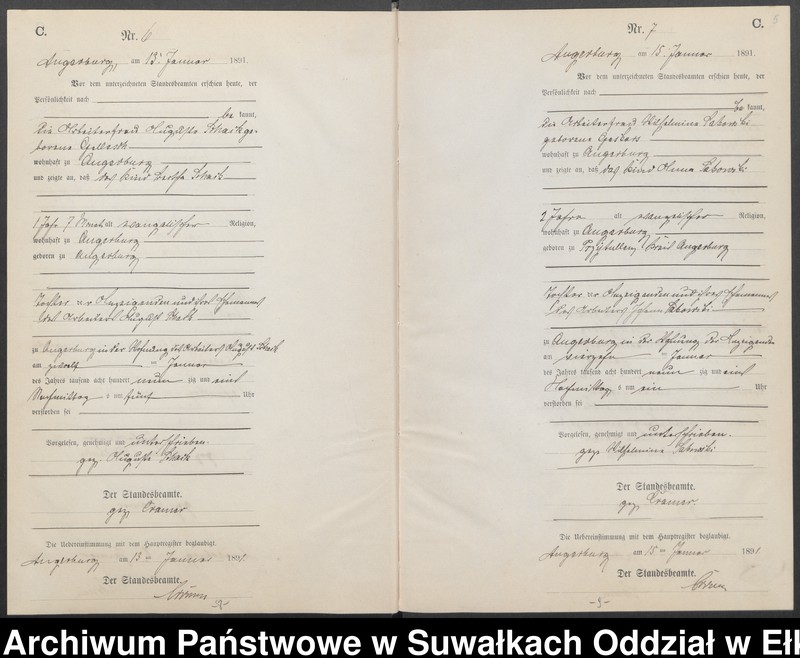 C.
Nr. 6
Angerburg, am 13ten Januar 1891.
Vor dem unterzeichneten Standesbeamten erschien heute, der
Persönlichkeit nach
be kannt,
die Arbeiterfrau Auguste ge-
borene
wohnhaft zu Angerburg
und zeigte an, daß das Kind Bertha
1 Jahr 7 Monat alt evangelischer Religion,
wohnhaft zu Angerburg
geboren zu Angerburg
Tochter der Anzeigenden und ihres Ehemannes
des Arbeiters August
zu Angerburg in der Wohnung des Arbeiters August
am zwölften Januar
des Jahres tausend acht hundert neun zig und eins
Nachmittag s um fünf Uhr
verstorben sei
Vorgelesen, genehmigt und unterschrieben.
gez. Auguste
Der Standesbeamte.
gez. Cramer
Die Uebereinstimmung mit dem Hauptregister beglaubigt.
Angerburg am 13ten Januar 1891.
Der Standesbeamte.
Cramer
C.
5
Nr. 7
Angerburg am 15 Januar 1891.
Vor dem unterzeichneten Standesbeamten erschien heute, der
Persönlichkeit nach
be kannt,
die Arbeiterfrau Wilhelmine
geborene
wohnhaft zu Angerburg
und zeigte an, daß das Kind Anna
2 Jahre alt evangelischer Religion,
wohnhaft zu Angerburg
geboren zu Przytullen, Kreis Angerburg
Tochter der Anzeigenden und ihres Ehemannes
des Arbeiters
zu Angerburg in der Wohnung der Anzeigenden
am vierzehnten Januar
des Jahres tausend acht hundert neun zig und eins
Nachmittag s um ein Uhr
verstorben sei
Vorgelesen, genehmigt und unterschrieben.
gez. Wilhelmine
Der Standesbeamte.
gez. Cramer.
Die Uebereinstimmung mit dem Hauptregister beglaubigt.
Angerburg am 15ten Januar 1891
Der Standesbeamte.
Cramer
Archiwum Państwowe w Suwałkach Oddział w Ełk